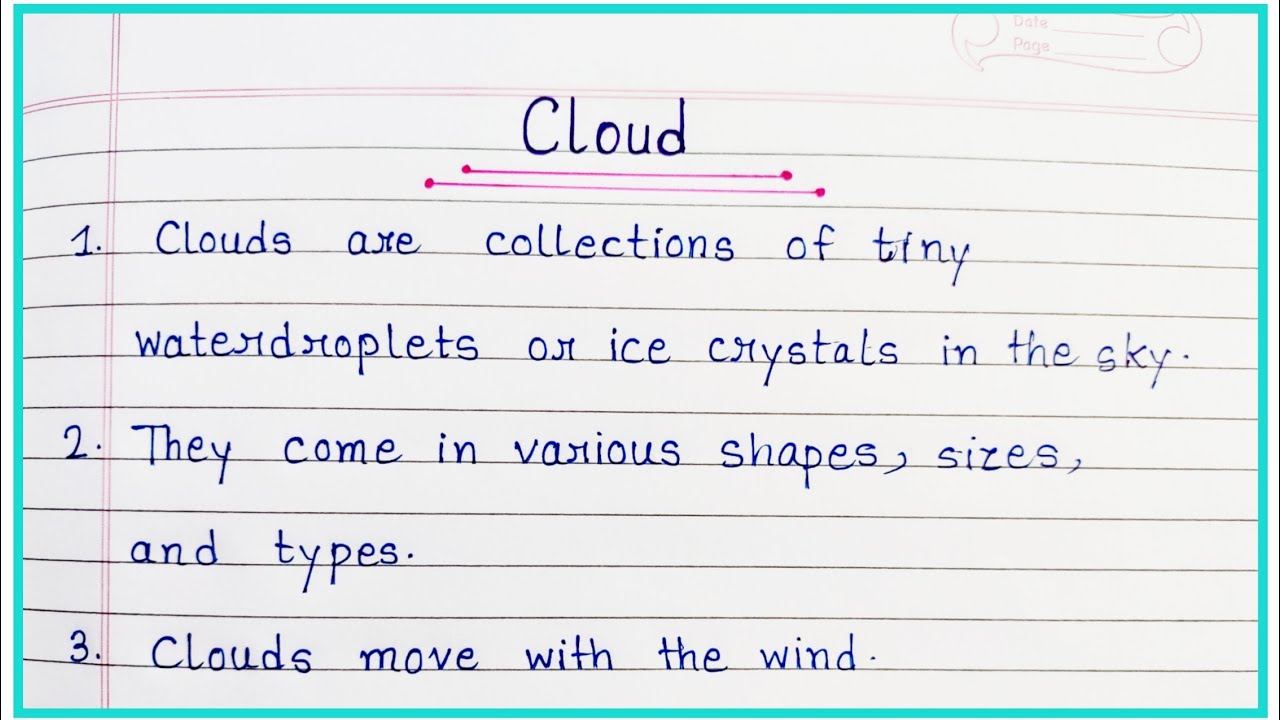 Date
Page
Cloud
1. Clouds are collections of tiny
waterdroplets or ice crystals in the sky.
2. They come in various shapes, sizes,
and types.
3. Clouds move with the wind.